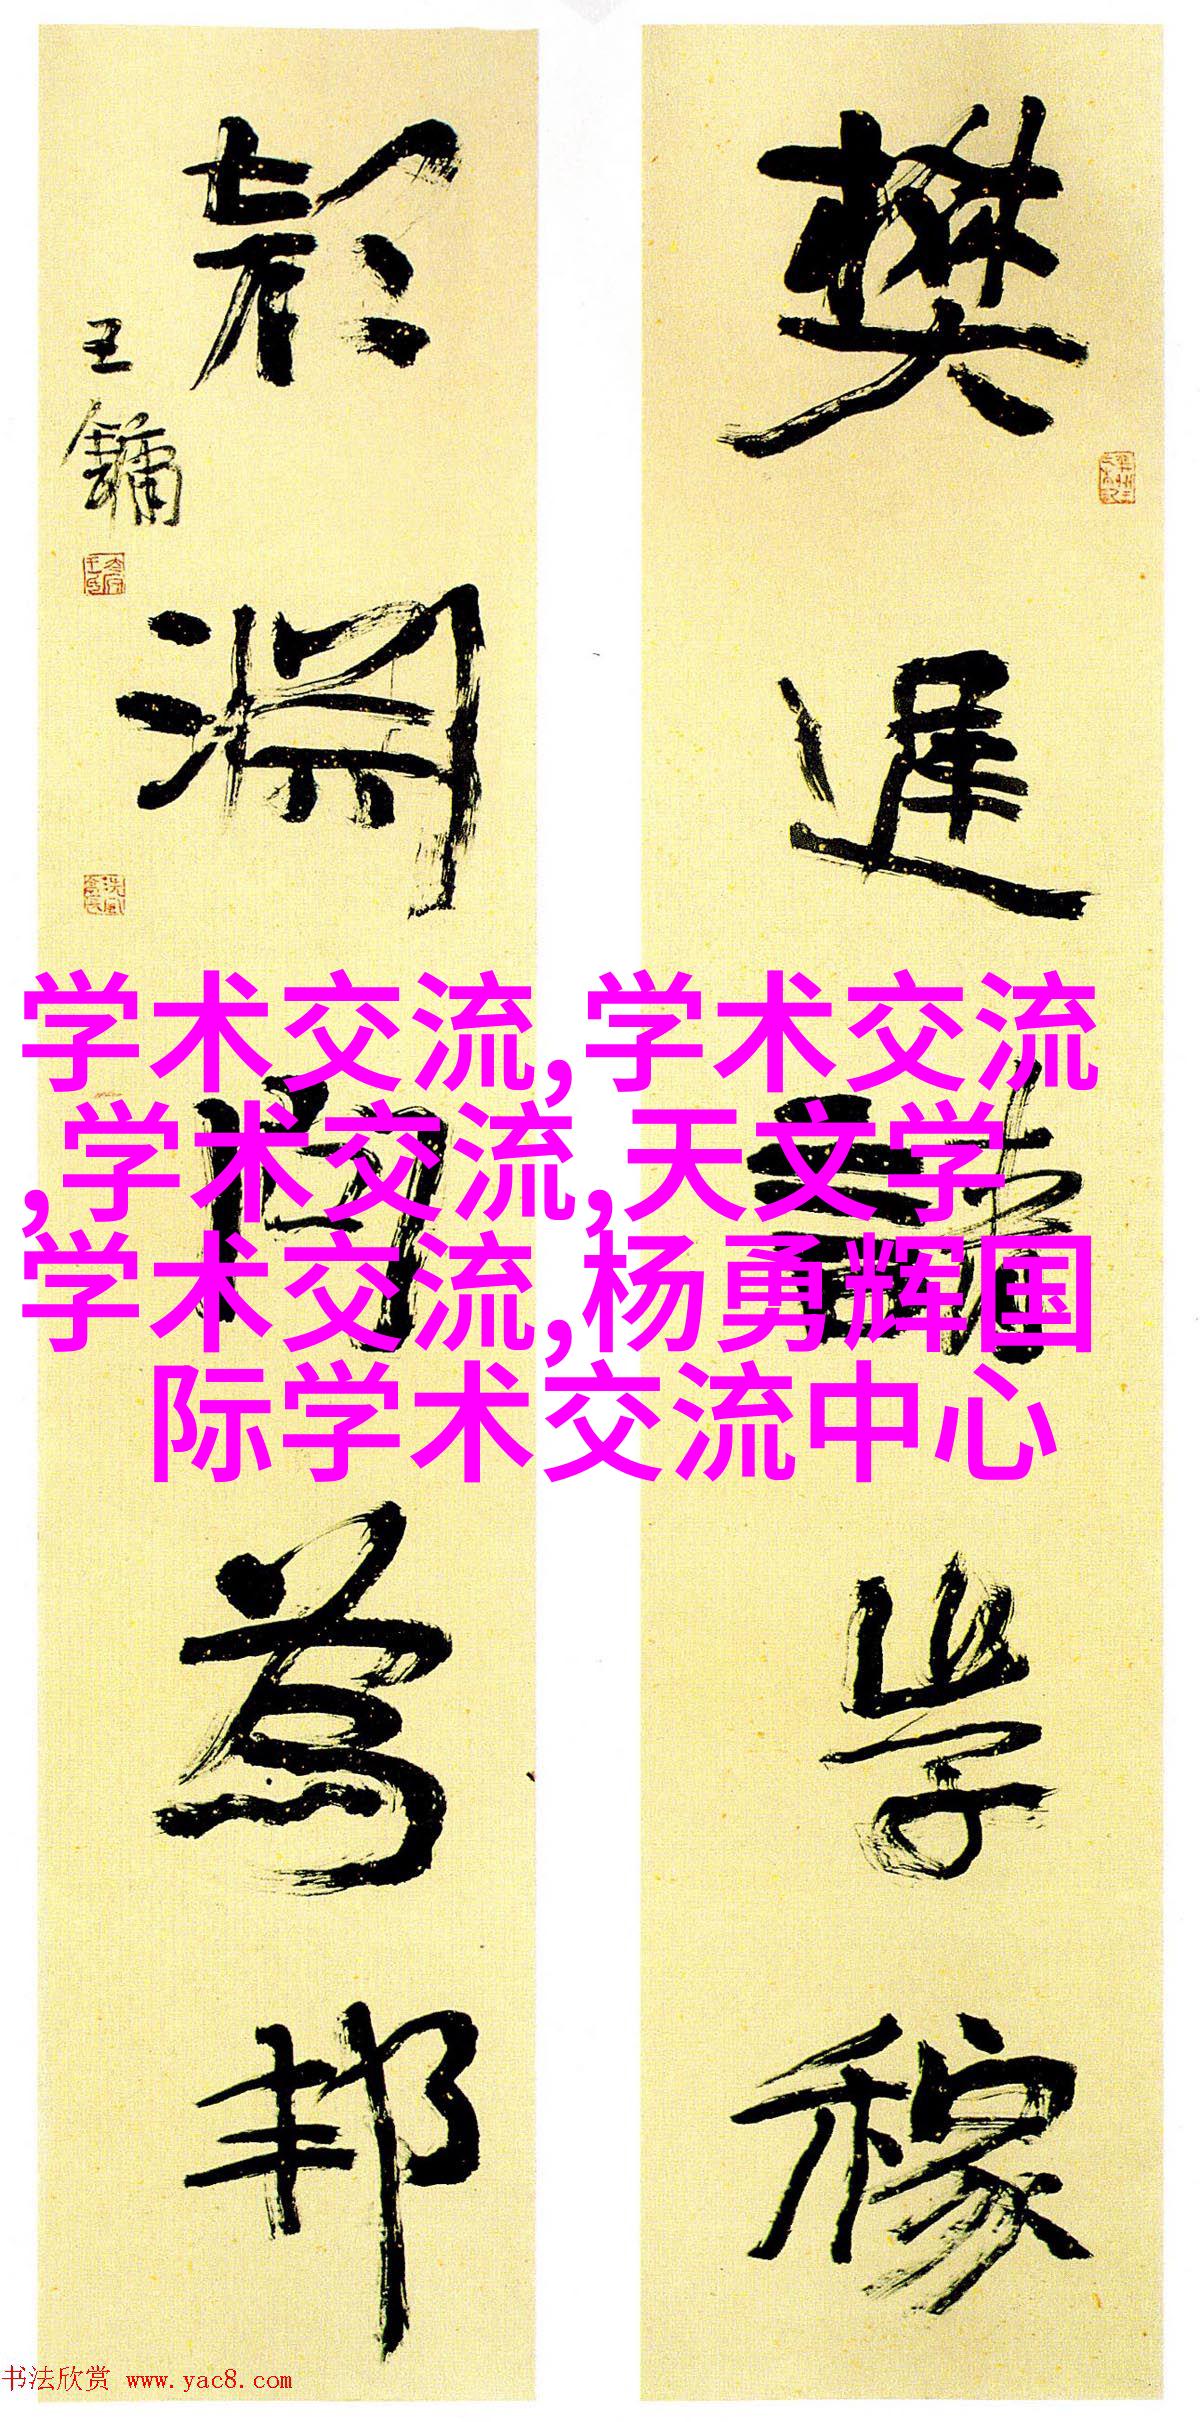 樊遲請學稼
顔淵問為邦
王鏞
学术交流,学术交流
,学术交流,天文学
学术交流,杨勇辉国
际学术交流中心
书法欣赏 www.yac8.com